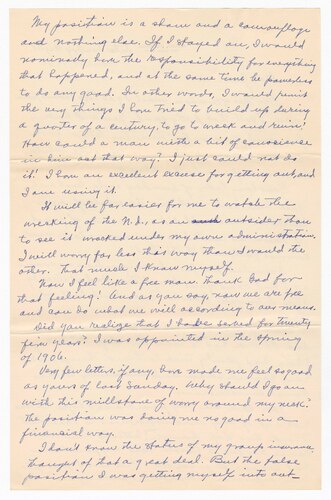 My position is a sham and a camouflage
and nothing else. If I stayed on, I would
nominally have the responsibility for everything
that happened, and at the same time be powerless
to do any good. In other words, I would permit
the very things I have tried to build up during
a quarter of a century, to go to wreck and ruin!
How could a man with a bit of conscience
in him act that way? I just could not do
it! I have an excellent excuse for getting out, and
I am using it.
It will be far easier for me to watch the
wrecking of the N.D., as an outsider than
to see it wrecked under my own administration.
I will worry far less this way than I would the
other. That much I know myself.
Now I feel like a free man. Thank God for
that feeling! And as you say, now we are free
and can do what we will according to our means.
Did you realize that I have served for twenty
few years? I was appointed in the spring
of 1906.
Very few letters, if any, have made me feel so good
as yours of last Sunday. Why should I go on
with this millstone of worry around my neck?
The position was doing me no good in a
financial way.
I don't know the status of my group insurance,
thought of that a great deal. But the false
position I was getting myself into out-